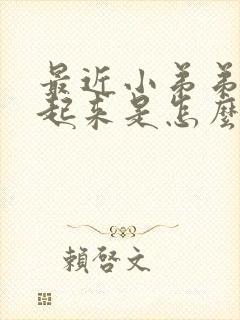 最近小弟弟
起来是怎麼
賴啓文